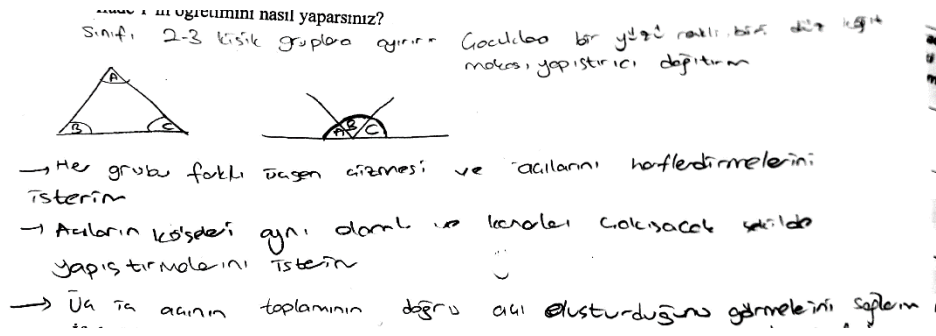 ın öğretimini nasıl yaparsınız?
Sınıfı 2-3 kişik gruplara ayırırım Çocuklara bir yüzü renkli biri düz kağıt
makas, yapıştırıcı dağıtırım
A
B C
A B C
→ Her grubu farklı üçgen çizmesi ve açılarını harflerdirmelerini
isterim
→ Açıların köşeleri aynı olarak ve kenarlar çakışacak şekilde
yapıştırmalarını isterim
→ Üç iç açının toplamının doğru açı oluşturduğunu görmelerini sağlarım